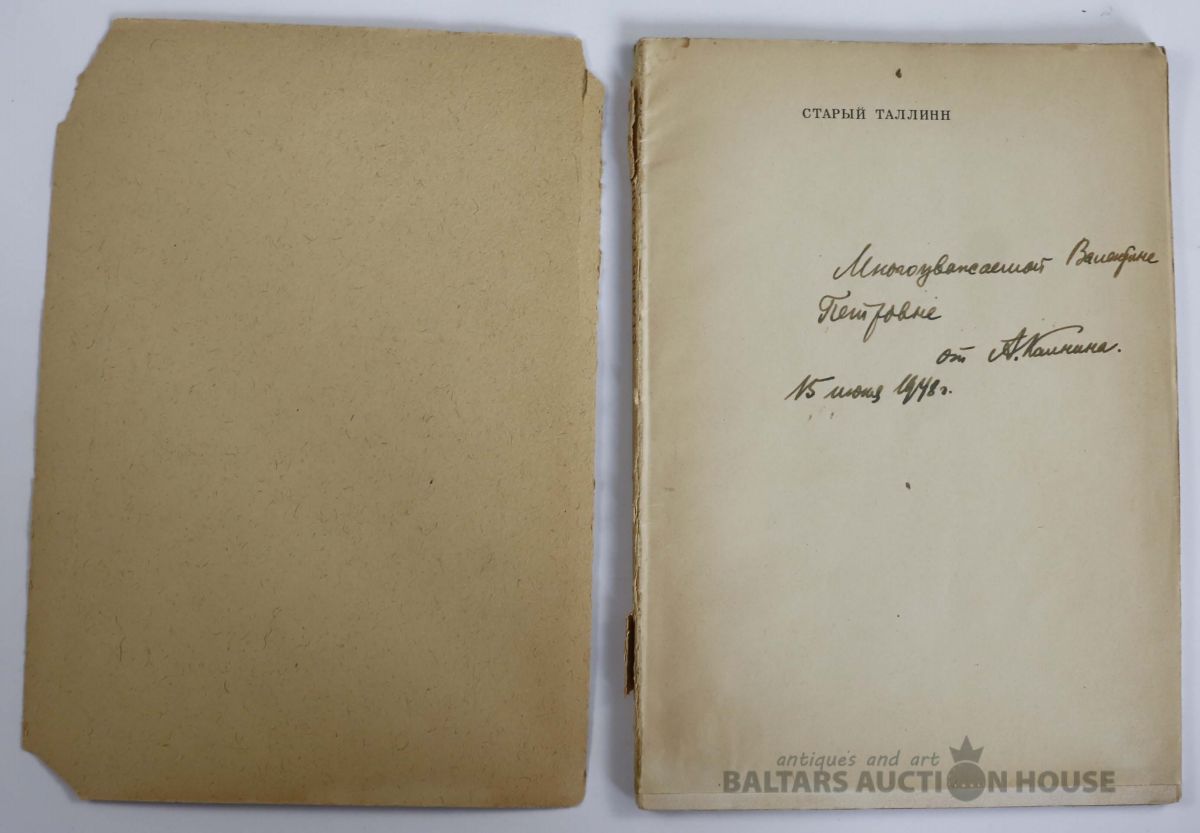 СТАРЫЙ ТАЛЛИНН
Многоуважаемой Валентине
Петровне
от А. Калнина.
15 июня 1948 г.
antiques and art
BALTARS AUCTION HOUSE